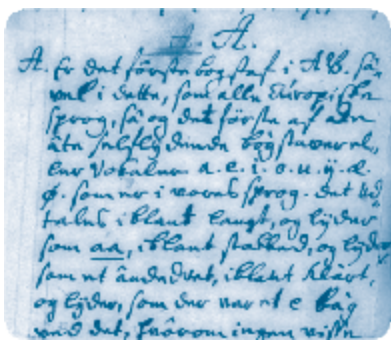 A.
A. Er det förste bogstaf i AB. så
vel i dette, som alle Europiske
sprog, så og det förste af den
åta selflydende bogstaver el,
ler Vokaler a. e. i. o. u. ÿ. æ.
ø. som er i vores sprog. det ud,
tales iblant langt, og lÿder
som aa, iblant stakked, og lÿder
som et åndedret, iblant klart,
og lÿder, som der var et e bag
ved det, hvårom ingen visse